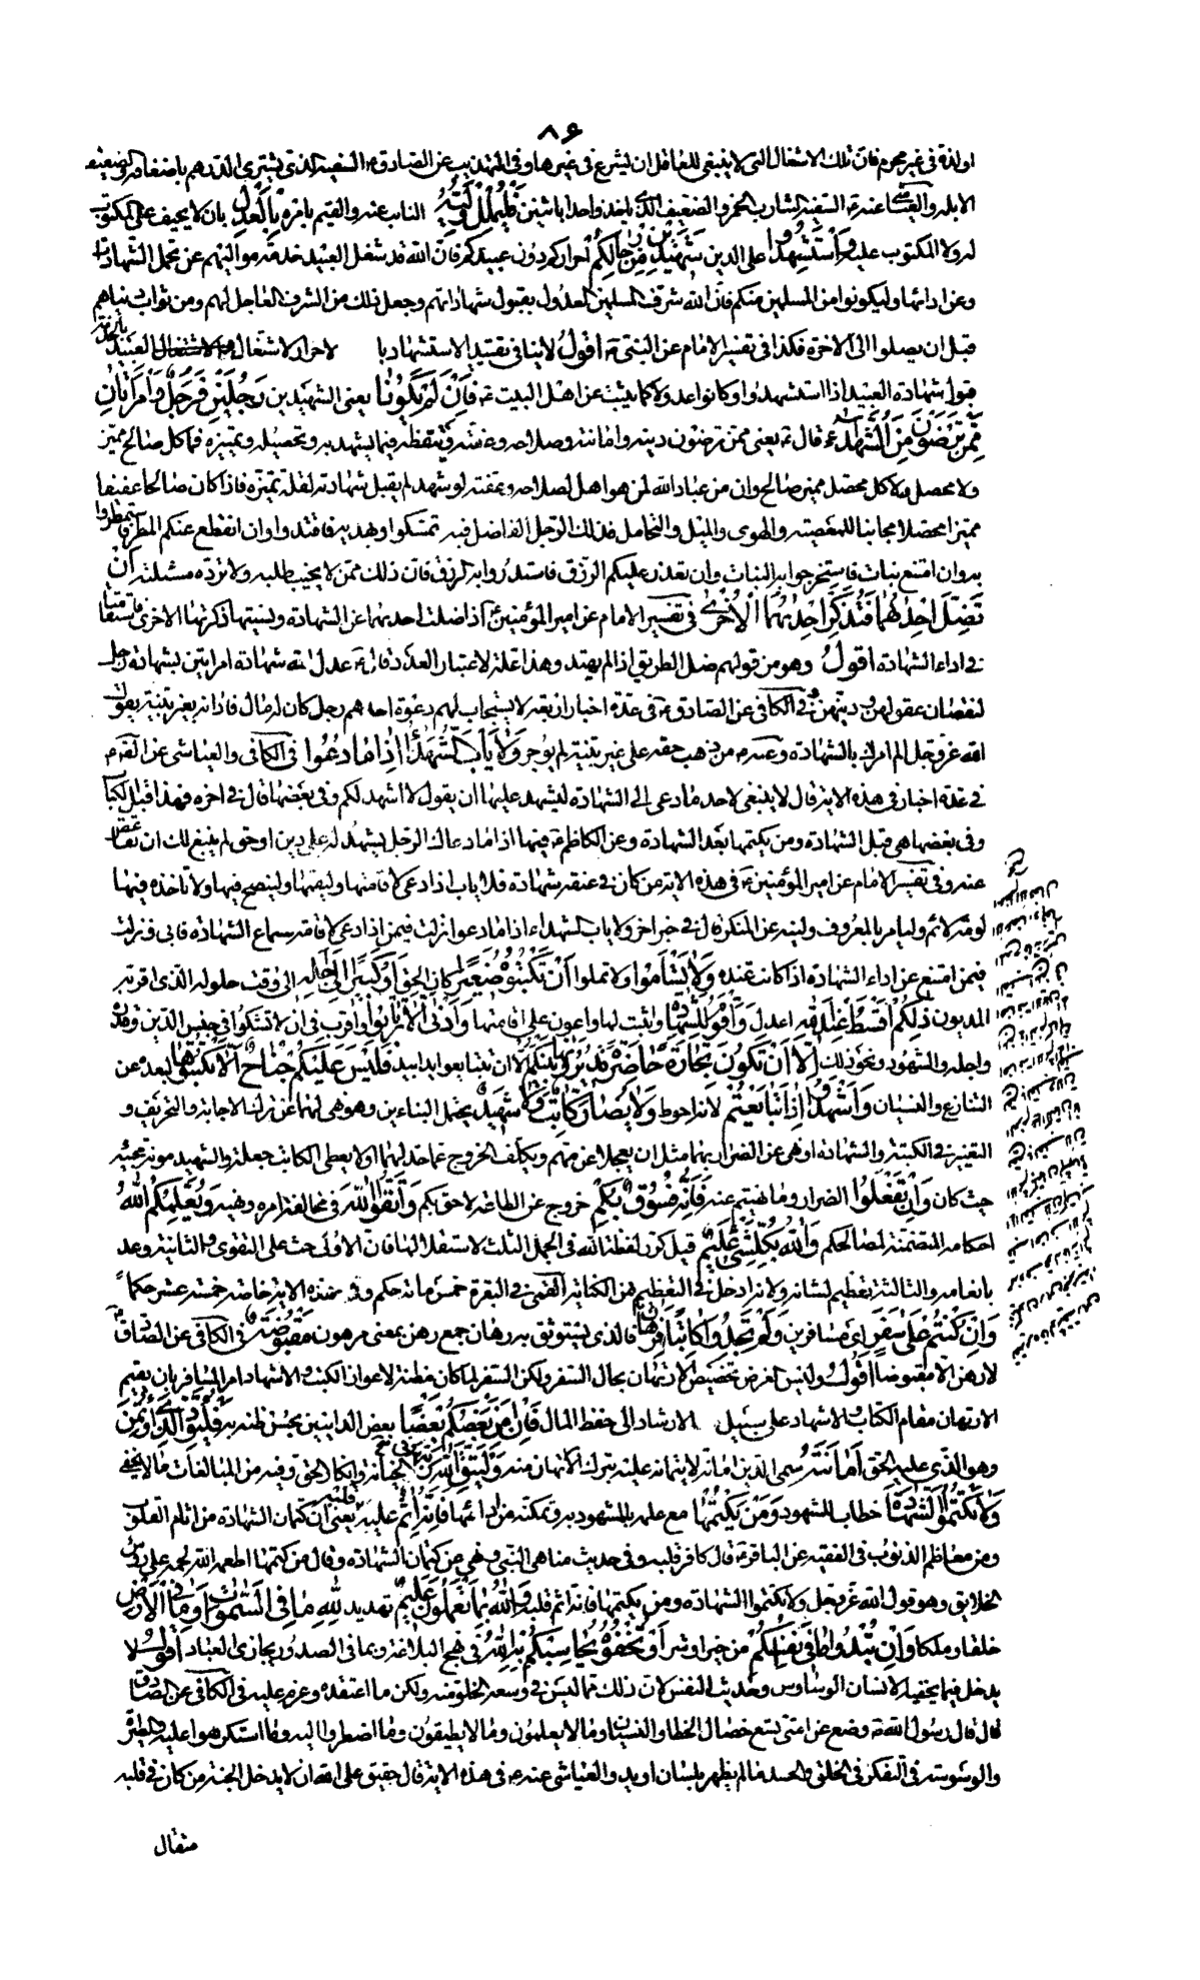 ٨۶
او لذة فى غير محرم فان تلك الاشغال التى لا ينبغى للعاقل ان يشرع فى غيرها وفى التهذيب عن الصادق ع السفيه الذى يشترى الدرهم باضعافه والضعيف
الابله والعياشى عنه ع السفيه الشارب الخمر والضعيف الذى ياخذ واحدا باثنين فَلْيُمْلِلْ وَلِيُّهُ النائب عنه والقيم بامره بِالْعَدْلِ بان لا يحيف على المكتوب
له ولا المكتوب عليه وَاسْتَشْهِدُوا على الدين شَهِيدَيْنِ مِنْ رِجَالِكُمْ احراركم دون عبيدكم فان الله قد شغل العبيد بخدمة مواليهم عن تحمل الشهادات
وعن ادائها وليكونوا من المسلمين منكم فان الله شرف المسلمين العدول بقبول شهاداتهم وجعل ذلك من الشرف العاجل لهم ومن ثواب دنياهم
قبل ان يصلوا الى الاخرة فكذا فى تفسير الامام عن النبى ص اقول لا ينافى تقييد الاستشهاد با لاحرار لاشغال العبيد بالخدمة
قبول شهادة العبيد اذا استشهدوا وكانوا عدولا كما يثبت عن اهل البيت ع فَاِنْ لَمْ يَكُونَا يعنى الشهيدين رَجُلَيْنِ فَرَجُلٌ وَامْرَاَتَانِ
مِمَّنْ تَرْضَوْنَ مِنَ الشُّهَدَاءِ قال ع يعنى ممن ترضون دينه وامانته وصلاحه وعفته وتيقظه فيما يشهد به وتحصيله وتمييزه فما كل صالح مميز
ولا محصل ولا كل محصل مميز صالح وان من عباد الله لمن هو اهل لصلاحه وعفته لو شهد لم يقبل شهادته لقلة تمييزه فاذا كان صالحا عفيفا
مميزا محصلا مجانبا للمعصية والهوى والميل والتحامل فذلك الرجل الفاضل فبه تمسكوا وبهديه فاقتدوا وان انقطع عنكم المطر فاستمطروا
به وان امتنع نبات فاستخرجوا به النبات وان تعذر عليكم الرزق فاستدروا به الرزق فان ذلك ممن لا يخيب طلبه ولا ترد مسئلته اَنْ
تَضِلَّ اِحْدٰهُمَا فَتُذَكِّرَ اِحْدٰهُمَا الْاُخْرٰى فى تفسير الامام عن امير المؤمنين ع اذا ضلت احديهما عن الشهادة ونسيتها ذكرتها الاخرى فاستقامتا
فى اداء الشهادة اقول وهو من قولهم ضل الطريق اذا لم يهتد وهذا علة لاعتبار العدد قال ع عدل الله شهادة امراتين بشهادة رجل
لنقصان عقولهن ودينهن فى الكافى عن الصادق ع فى عدة اخبار اربعة لا يستجاب لهم دعوة احدهم رجل كان له مال فادانه بغير بينة يقول
الله عز وجل الم امرك بالشهادة وعنه ع من ذهب حقه على غير بينة لم يوجر وَلَا يَاْبَ الشُّهَدَاءُ اِذَا مَا دُعُوا فى الكافى والعياشى عن الصادق ع
فى عدة اخبار فى هذه الاية قال لا ينبغى لاحد اذا دعى الى الشهادة ليشهد عليها ان يقول لا اشهد لكم وفى بعضها قال فى اخره فهذا قبل الكتاب
وفى بعضها هى قبل الشهادة ومن يكتمها بعد الشهادة وعن الكاظم ع فيها اذا ما دعاك الرجل ليشهد له على دين او حق لم ينبغ لك ان تقاعس
عنه وفى تفسير الامام عن امير المؤمنين ع فى هذه الاية من كان فى عنقه شهادة فلا ياب اذا دعى لاقامتها وليقمها ولينصح فيها ولا تاخذه فيها
لومة لائم وليامر بالمعروف ولينه عن المنكر قال فى خبر اخر ولا ياب الشهداء اذا ما دعوا نزلت فيمن اذا دعى لاقامة سماع الشهادة فابى ونزلت
فيمن امتنع عن اداء الشهادة اذا كانت عنده وَلَا تَسْاَمُوا ولا تملوا اَنْ تَكْتُبُوهُ صَغِيرًا كان الحق اَوْ كَبِيرًا اِلٰى اَجَلِهِ الى وقت حلوله الذى اقر به
المديون ذٰلِكُمْ اَقْسَطُ عِنْدَ اللهِ اعدل وَاَقْوَمُ لِلشَّهَادَةِ واثبت لها واعون على اقامتها وَاَدْنٰى اَلَّا تَرْتَابُوا واقرب فى ان لا تشكوا فى جنس الدين وقدره
واجله والشهود ونحو ذلك اِلَّا اَنْ تَكُونَ تِجَارَةً حَاضِرَةً تُدِيرُونَهَا بَيْنَكُمْ الا ان تتبايعوا يدا بيد فَلَيْسَ عَلَيْكُمْ جُنَاحٌ اَلَّا تَكْتُبُوهَا لبعده عن
التنازع والنسيان وَاَشْهِدُوا اِذَا تَبَايَعْتُمْ لانه احوط وَلَا يُضَارَّ كَاتِبٌ وَلَا شَهِيدٌ يحتمل البنائين وهو نهى لهما عن ترك الاجابة والتحريف و
التغيير فى الكتبة والشهادة او نهى عن الضرار بهما مثل ان يعجلا عن مهم ويكلفا الخروج عما حد لهما او لا يعطى الكاتب جعله والشهيد مؤنة مجيئه
حيث كان وَاِنْ تَفْعَلُوا الضرار وما نهيتم عنه فَاِنَّهُ فُسُوقٌ بِكُمْ خروج عن الطاعة لاحق بكم وَاتَّقُوا اللهَ فى مخالفة امره ونهيه وَيُعَلِّمُكُمُ اللهُ
احكامه المتضمنة لمصالحكم وَاللهُ بِكُلِّ شَىْءٍ عَلِيمٌ قيل كرر لفظة الله فى الجمل الثلث لاستقلالها فان الاولى حث على التقوى والثانية وعد
بانعامه والثالثة تعظيم لشانه ولانه ادخل فى التعظيم من الكناية القمى فى البقرة خمس مائة حكم وفى هذه الاية خاصة خمسة عشر حكما
وَاِنْ كُنْتُمْ عَلٰى سَفَرٍ اى مسافرين وَلَمْ تَجِدُوا كَاتِبًا فَرِهَانٌ فالذى يستوثق به رهان جمع رهن بمعنى مرهون مَقْبُوضَةٌ فى الكافى عن الصادق ع
لا رهن الا مقبوضا اقول وليس الغرض تخصيص الارتهان بحال السفر ولكن السفر لما كان مظنة لاعواز الكتب والاشهاد امر المسافر بان يقيم
الارتهان مقام الكتاب والاشهاد على سبيل الارشاد الى حفظ المال فَاِنْ اَمِنَ بَعْضُكُمْ بَعْضًا بعض الداينين بحسن ظنه به فَلْيُؤَدِّ الَّذِى اؤْتُمِنَ
وهو الذى عليه الحق اَمَانَتَهُ سمى الدين امانة لايتمانه عليه بترك الارتهان منه وَلْيَتَّقِ اللهَ رَبَّهُ فى الخيانة وانكار الحق وفيه من المبالغات ما لا يخفى
وَلَا تَكْتُمُوا الشَّهَادَةَ خطاب للشهود وَمَنْ يَكْتُمْهَا مع علمه بالمشهود به وتمكنه من ادائها فَاِنَّهُ اٰثِمٌ قَلْبُهُ يعنى ان كتمان الشهادة من اثام القلب
ومن معاظم الذنوب فى الفقيه عن الباقر ع قال كافر قلبه وفى حديث مناهى النبى ص ونهى عن كتمان الشهادة وقال من كتمها اطعمه الله لحمه على رؤس
الخلايق وهو قول الله عز وجل ولا تكتموا الشهادة ومن يكتمها فانه اثم قلبه وَاللهُ بِمَا تَعْمَلُونَ عَلِيمٌ تهديد لِلّٰهِ مَا فِى السَّمٰوَاتِ وَمَا فِى الْاَرْضِ
خلقا وملكا وَاِنْ تُبْدُوا مَا فِى اَنْفُسِكُمْ من خير او شر اَوْ تُخْفُوهُ يُحَاسِبْكُمْ بِهِ اللهُ فى نهج البلاغة وبما فى الصدور يجازى العباد اقول لا
يدخل فيما يخفيه الانسان الوساوس وحديث النفس لان ذلك مما ليس فى وسعه الخلو منه ولكن ما اعتقده وعزم عليه فى الكافى عن الصادق ع
قال قال رسول الله ص وضع عن امتى تسع خصال الخطا والنسيان وما لا يعلمون وما لا يطيقون وما اضطروا اليه وما استكرهوا عليه والطيرة
والوسوسة فى التفكر فى الخلق والحسد ما لم يظهر بلسان او يد والعياشى عنه ع فى هذه الاية قال حقيق على الله ان لا يدخل الجنة من كان فى قلبه
مثقال